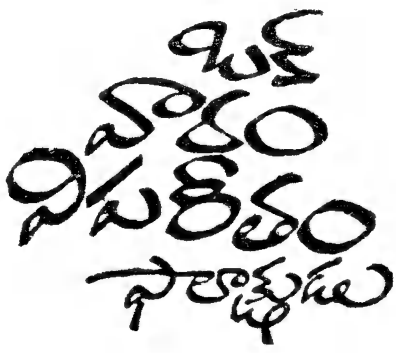 ఒక
వారం
విపరీతం
ఫాలాక్షుడు